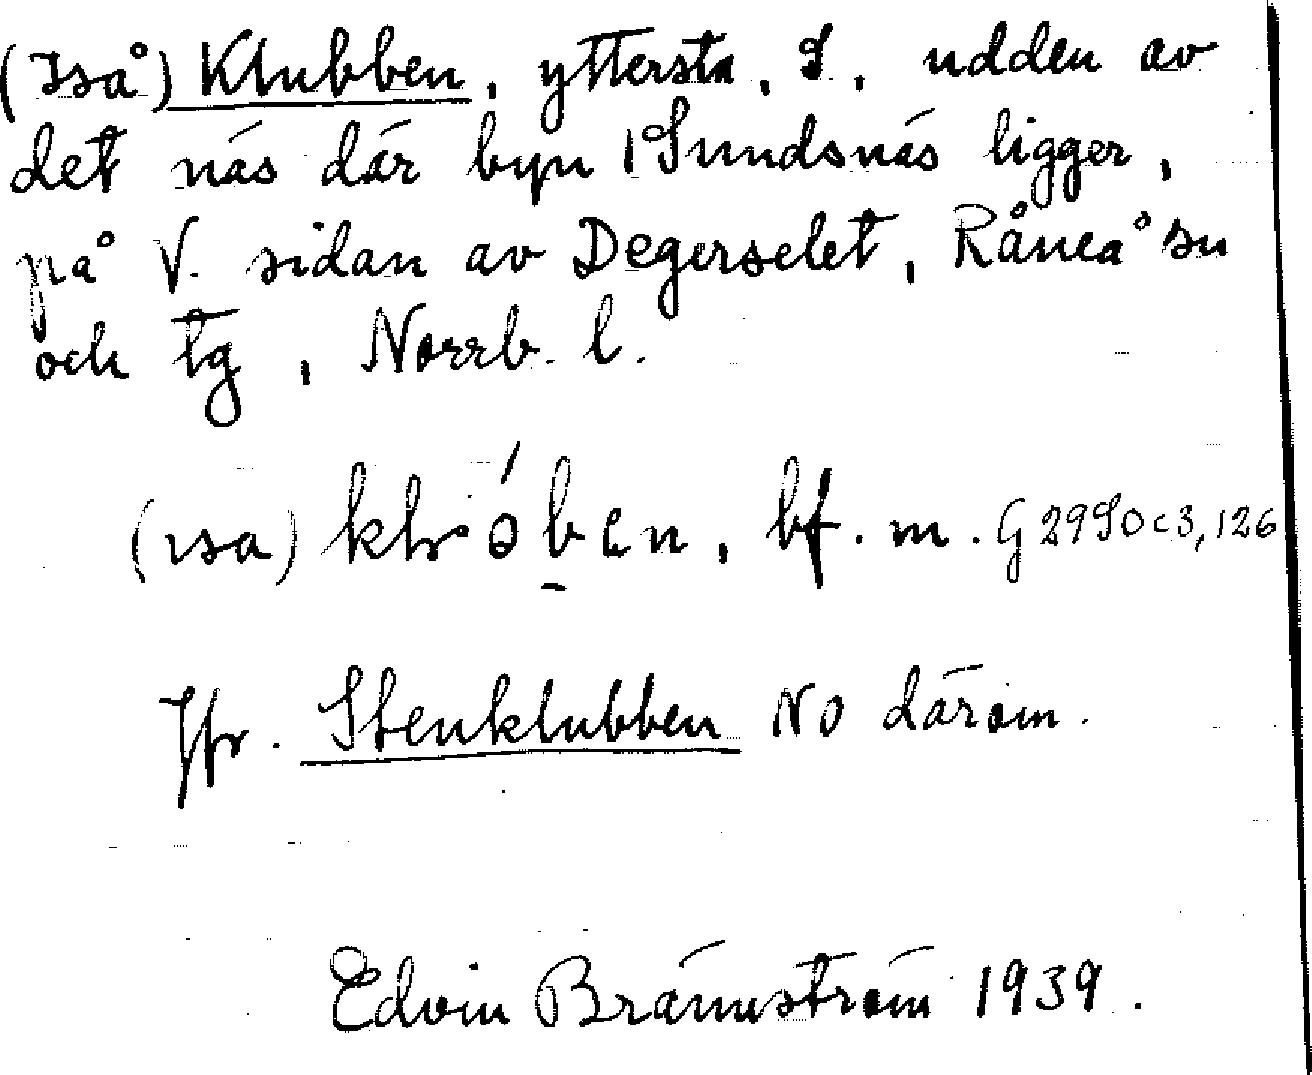 (Iså) Klubben, yttersta, S, udden av
det näs där byn Sundsnäs ligger,
på V. sidan av Degerselet, Råneå sn
och tg, Norrb. l.
(ɪsa) bf. m. G 2990 c3, 126
Jfr. Stenklubben NO därom.
Edvin Brännström 1939.